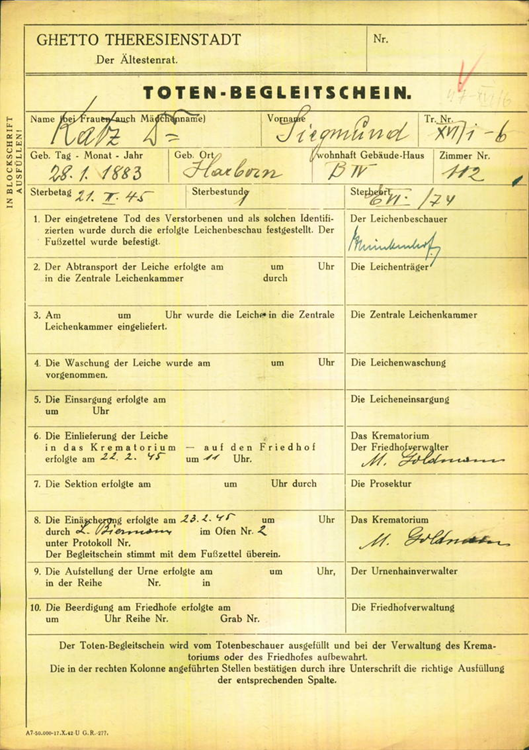 GHETTO THERESIENSTADT
Der Ältestenrat.
Nr.
TOTEN-BEGLEITSCHEIN.
IN BLOCKSCHRIFT AUSFÜLLEN!
Name (bei Frauen auch Mädchenname) Vorname Tr. Nr.
Katz Siegmund XVI/1-6
Geb. Tag - Monat - Jahr Geb. Ort wohnhaft Gebäude-Haus Zimmer Nr.
28.1.1883 Haxborn B IV 112
Sterbetag 21. II. 45 Sterbestunde Sterbeort
1. Der eingetretene Tod des Verstorbenen und als solchen Identifi-
zierten wurde durch die erfolgte Leichenbeschau festgestellt. Der
Fußzettel wurde befestigt.
Der Leichenbeschauer
2. Der Abtransport der Leiche erfolgte am um Uhr
in die Zentrale Leichenkammer durch
Die Leichenträger
3. Am um Uhr wurde die Leiche in die Zentrale
Leichenkammer eingeliefert.
Die Zentrale Leichenkammer
4. Die Waschung der Leiche wurde am um Uhr
vorgenommen.
Die Leichenwaschung
5. Die Einsargung erfolgte am
um Uhr
Die Leicheneinsargung
6. Die Einlieferung der Leiche
in das Krematorium — auf den Friedhof
erfolgte am 22.2.45 um 11 Uhr.
Das Krematorium
Der Friedhofverwalter
M. Goldmann
7. Die Sektion erfolgte am um Uhr durch
Die Prosektur
8. Die Einäscherung erfolgte am 23.2.45 um Uhr
durch L. Biermann im Ofen Nr. 2
unter Protokoll Nr.
Der Begleitschein stimmt mit dem Fußzettel überein.
Das Krematorium
M. Goldmann
9. Die Aufstellung der Urne erfolgte am um Uhr,
in der Reihe Nr. in
Der Urnenhainverwalter
10. Die Beerdigung am Friedhofe erfolgte am
um Uhr Reihe Nr. Grab Nr.
Die Friedhofverwaltung
Der Toten-Begleitschein wird vom Totenbeschauer ausgefüllt und bei der Verwaltung des Krema-
toriums oder des Friedhofes aufbewahrt.
Die in der rechten Kolonne angeführten Stellen bestätigen durch ihre Unterschrift die richtige Ausfüllung
der entsprechenden Spalte.
A7-50.000-17.X.42-U G.R.-277.